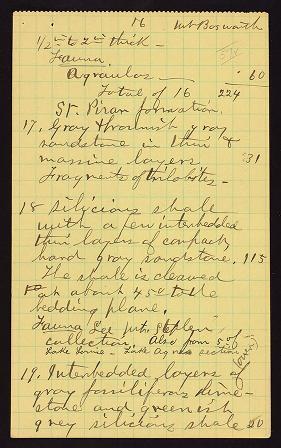 16 Mt Bosworth
1/2" to 2" thick -
Fauna
Agraulos 60
Total of 16 224
St. Piran formation.
17. Gray & brownish gray
sandstone in thin &
massive layers 31
Fragments of trilobites -
18 Silicious shale
with a few interbedded
thin layers of compact
hard gray sandstone. 115
The shale is cleaved
at about 45° to the
bedding plane.
Fauna See Mt. Stephen
collection. Also from S. of
Lake Louise - Lake Agnes section
(over)
19. Interbedded layers of
gray fossiliferous lime-
stone and greenish
grey silicious shale 20